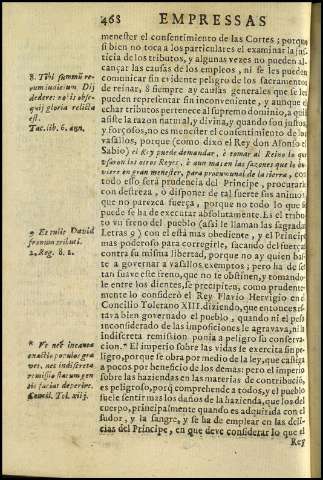 468 EMPRESSAS
menester el consentimiento de las Cortes; porque
si bien no toca a los particulares el examinar la jus-
ticia de los tributos, y algunas vezes no pueden al-
cançar las causas de los empleos, ni se les pueden
comunicar sin evidente peligro de los sacramentos
de reinar, 8 siempre ay causas generales que se les
pueden representar sin inconveniente, y aunque el
echar tributos pertenece al supremo dominio, a quien
asiste la razon natural, y divina, y quando son justos,
y forçosos, no es menester el consentimiento de los
vasallos, porque (como dixo el Rey don Alfonso el
Sabio) el Rey puede demandar, è tomar al Reino lo que
usaron los otros Reyes, è aun mas en las sazones que lo ou-
viere en gran menester, para pro comunal de la tierra, con
todo esso serà prudencia del Principe, procurarlo
con destreza, o disponer de tal suerte sus animos,
que no parezca fuerça, porque no todo lo que se
puede se ha de executar absolutamente. Es el tribu-
to vn freno del pueblo (assi le llaman las sagradas
Letras 9) con el està mas obediente, y el Principe
mas poderoso para corregirle, sacando del fuerças
contra su misma libertad, porque no ay quien bas-
te a governar a vasallos exemptos; pero ha de ser
tan suave este freno, que no se obstinen, y tomando-
le entre los dientes, se precipiten, como prudente-
mente lo considerò el Rey Flavio Hervigio en el
Concilio Toletano XIII. diziendo, que entonces es-
tava bien governado el pueblo, quando ni el peso
inconsiderado de las imposiciones le agravava, ni la
indiscreta remission ponia a peligro su conserva-
cion. * El imperio sobre las vidas se exercita sin pe-
ligro, porque se obra por medio de la ley, que castiga
a pocos por beneficio de los demas: pero el imperio
sobre las haziendas en las materias de contribucion,
es peligroso, porq̃ comprehende a todos, y el pueblo
suele sentir mas los daños de la hazienda, que los del
cuerpo, principalmente quando es adquirida con el
sudor, y la sangre, y se ha de emplear en las deli-
cias del Principe, en que deve considerar lo que el
Rey
8. Tibi summũ re-
rum iudicium Dij
dedere: nobis obse-
quij gloria relicta
est.
Tac. lib. 6. ann.
9 Et tulit David
frænum tributi.
2. Reg. 8. 1.
* Ve nec incauta
exactio populos gra-
vet, nec indiscreta
remissio statum gen-
tis faciat deperire.
Concil. Tol. xiij.